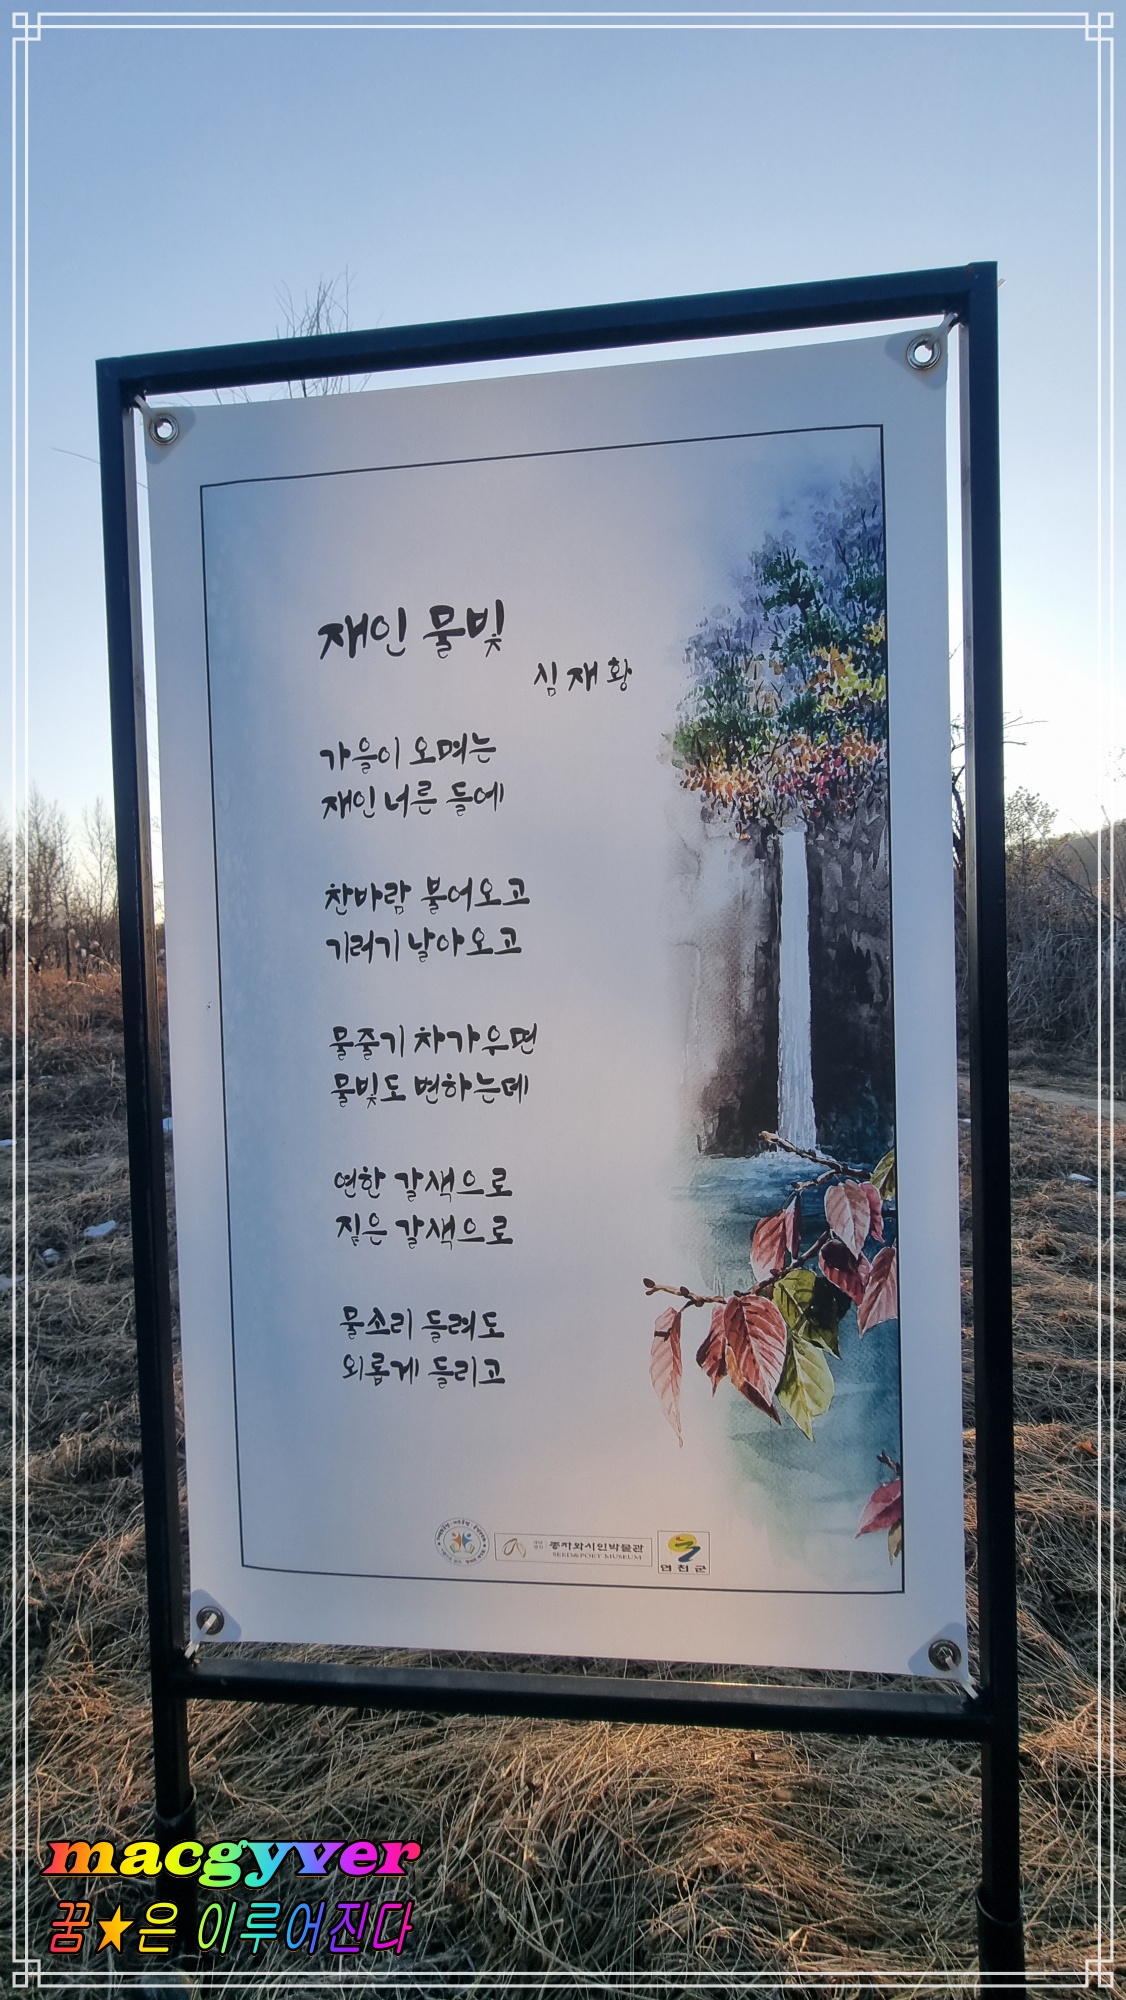 재인 물빛
심재황
가을이 오며는
재인 너른 들에
찬바람 불어오고
기러기 날아오고
물줄기 차가우면
물빛도 변하는데
연한 갈색으로
짙은 갈색으로
물소리 들려도
외롭게 들리고
종자와시인박물관
SEED&POET MUSEUM
연천군
macgyver
꿈★은 이루어진다